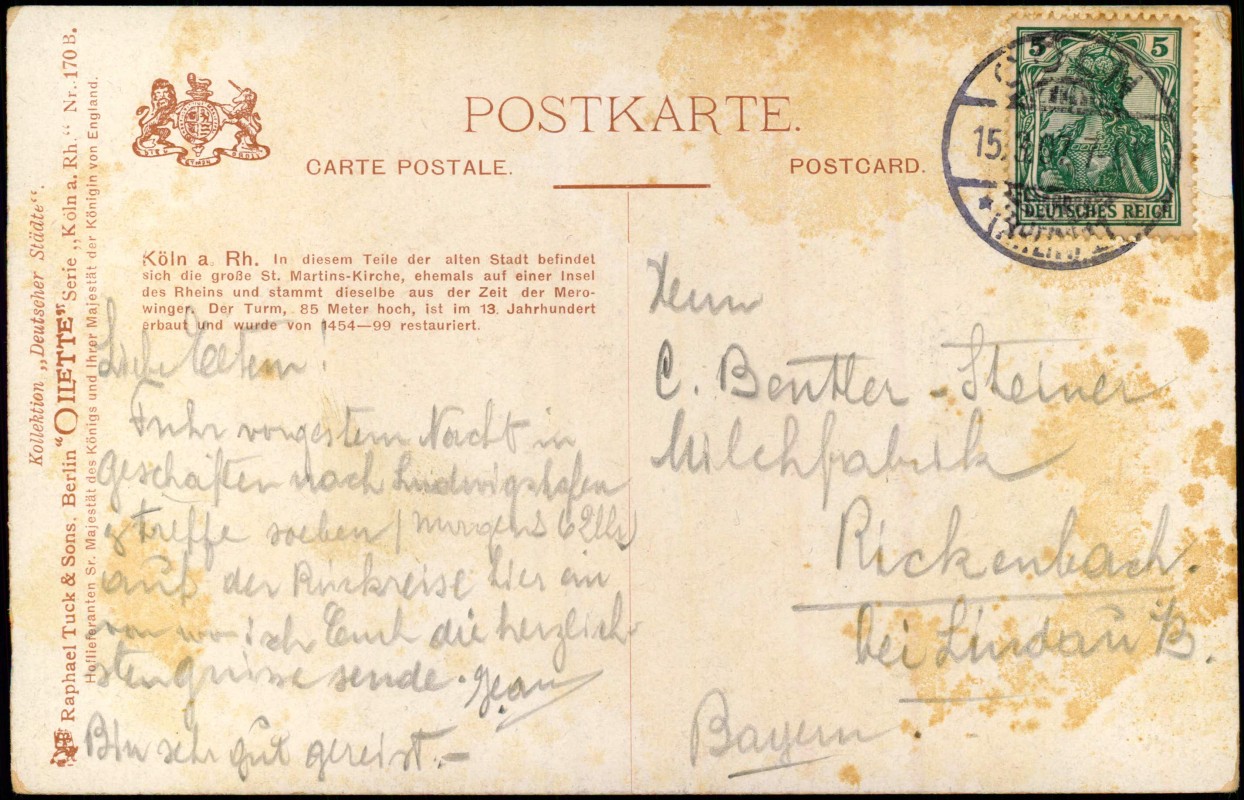 POSTKARTE.
CARTE POSTALE.
POSTCARD.
5 5
DEUTSCHES REICH
CÖLN
15.
Kollektion „Deutscher Städte“.
Raphael Tuck & Sons, Berlin “OILETTE” Serie „Köln a. Rh.“ Nr. 170 B.
Hoflieferanten Sr. Majestät des Königs und Ihrer Majestät der Königin von England.
Köln a. Rh. In diesem Teile der alten Stadt befindet
sich die große St. Martins-Kirche, ehemals auf einer Insel
des Rheins und stammt dieselbe aus der Zeit der Mero-
winger. Der Turm, 85 Meter hoch, ist im 13. Jahrhundert
erbaut und wurde von 1454—99 restauriert.
Liebe Eltern!
Fuhr vorgestern Nacht in
Geschäften nach Ludwigshafen
& treffe soeben / Morgens 6 Uhr
auf der Rückreise hier ein
von wo ich Euch die herzlich-
sten grüsse sende. Jean
Bin sehr gut gereist. –
Herrn
C. Bentler-Steiner
Milchfabrik
Rickenbach.
bei Lindau B.
Bayern